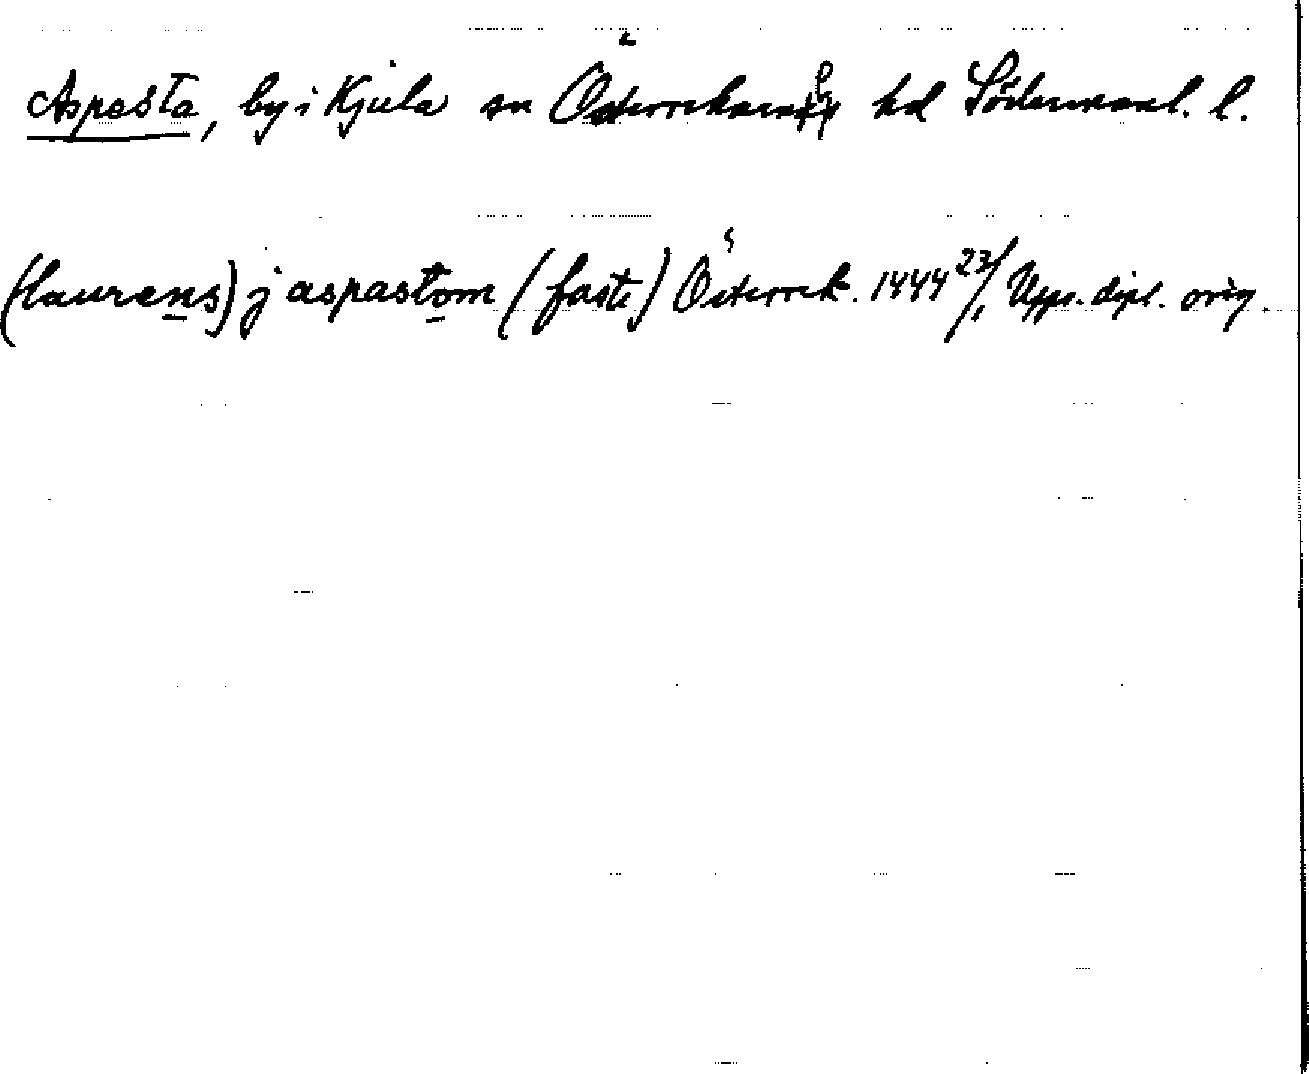 Aspesta, by i Kjula sn Österrekarne hd Södermanl. l.
(laurens) j aspastom (faste) Österrek. 1444 23/1 Upps. dipl. orig.